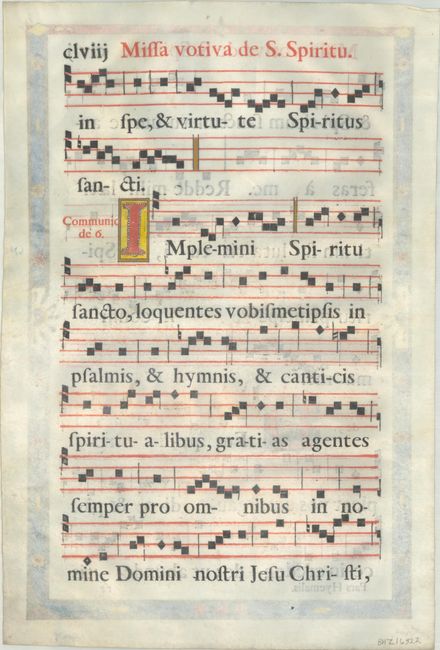 clviij Missa votiva de S. Spiritu.
in spe, & virtu- te Spi-ritus
san- cti.
Communio
de 6.
IMple-mini Spi- ritu
sancto, loquentes vobismetipsis in
psalmis, & hymnis, & canti-cis
spiri- tu- a- libus, gra-ti- as agentes
semper pro om- nibus in no-
mine Domini nostri Jesu Chri- sti,
Pars Hyemalis.